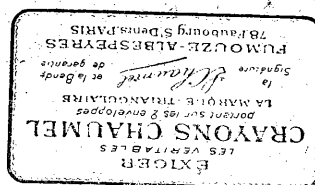 EXIGER
LES VÉRITABLES
CRAYONS CHAUMEL
portent sur les 2 enveloppes
LA MARQUE TRIANGULAIRE
la Signature Chaumel et la Bande de garantie
FUMOUZE-ALBESPEYRES
78, Faubourg St Denis. PARIS